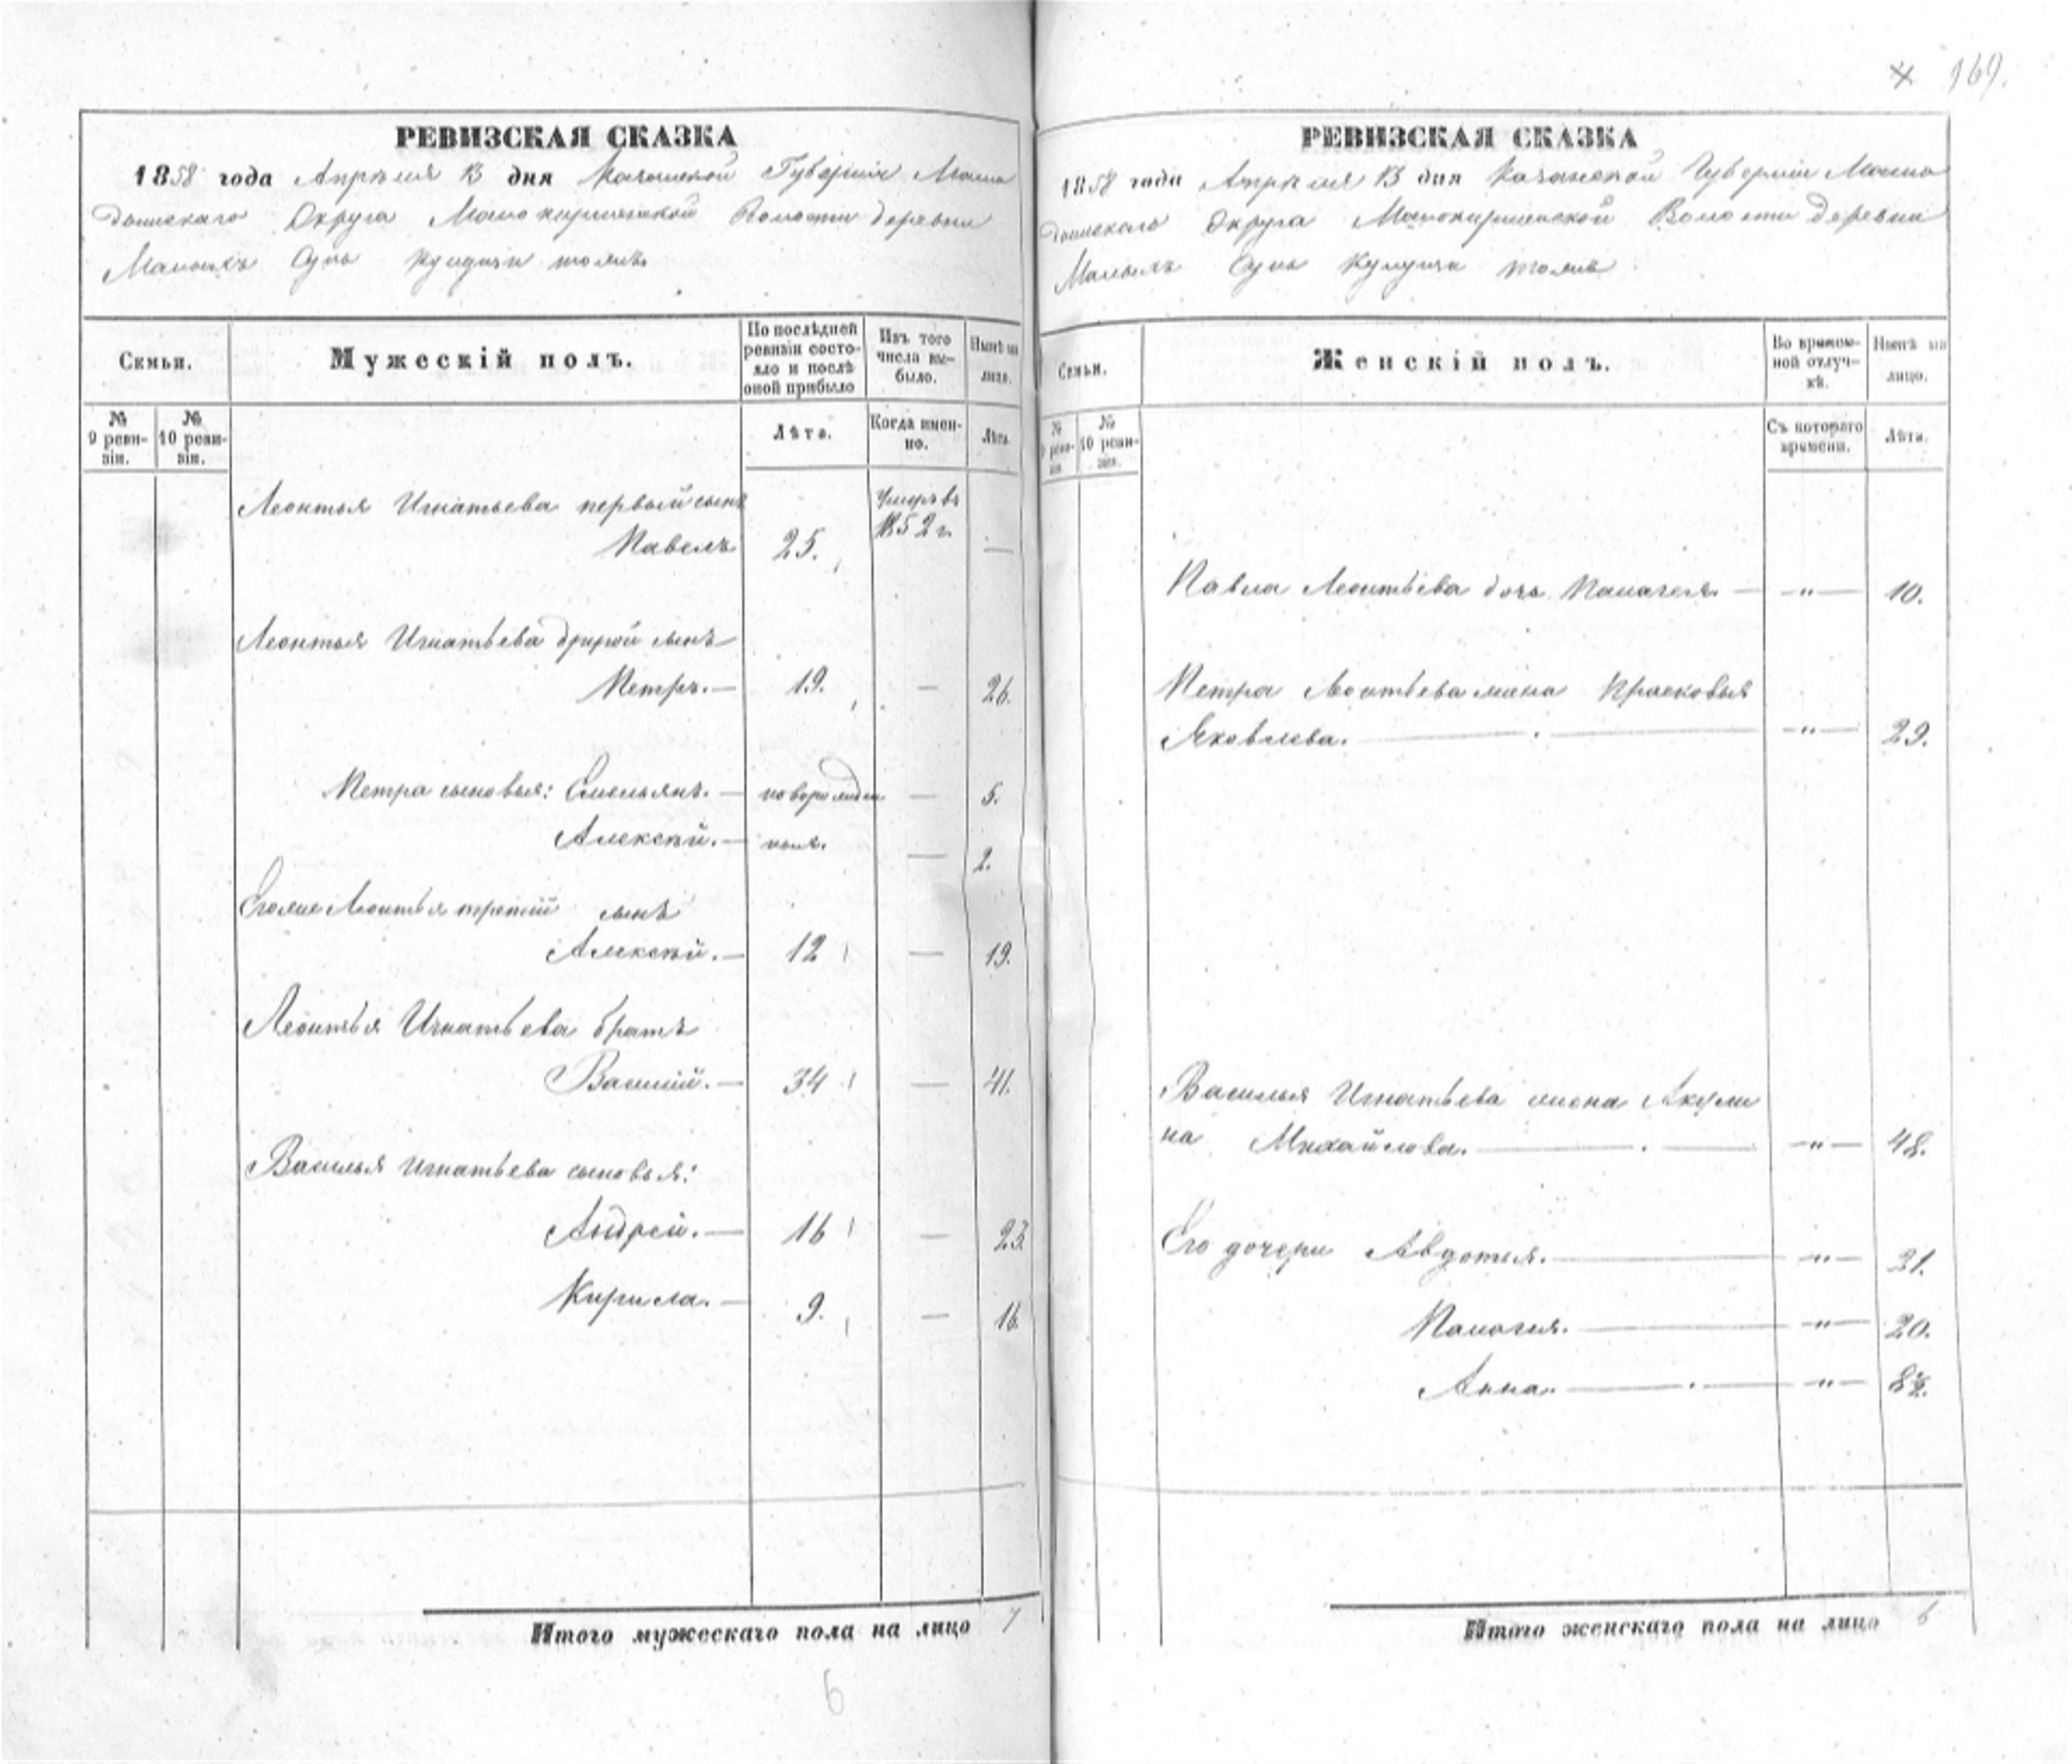 169.
РЕВИЗСКАЯ СКАЗКА
1858 года Апрѣля 13 дня Казанской Губерніи Мама
дышскаго Округа Волости деревни
Малыхъ Сунь тожъ
Семьи.
Мужескій полъ.
По послѣдней ревизіи состояло и послѣ оной прибыло
Изъ того числа вы-было.
Нынѣ на лицо.
№ 9 реви-зіи.
№ 10 реви-зіи.
Лѣта.
Когда имен-но.
Лѣта.
Леонтья Игнатьева первый сынъ
Павелъ 25. Умеръ въ 1852 г. —
Леонтья Игнатьева другой сынъ
Петръ. — 19. — 26.
Петра сыновья: Емельянъ. — новорожден — 5.
Алексѣй. — ные. — 2.
Его же Леонтья третій сынъ
Алексѣй. — 12 — 19.
Леонтья Игнатьева братъ
Василій. — 34 — 41.
Василья Игнатьева сыновья:
Андрей. — 16 — 23.
Кирила. — 9. — 16.
Итого мужескаго пола на лицо 7
6
РЕВИЗСКАЯ СКАЗКА
1858 года Апрѣля 13 дня Казанской Губерніи Мама
дышскаго Округа Волости деревни
Малыхъ Сунь тожъ
Семьи.
Женскій полъ.
Во времен-ной отлуч-кѣ.
Нынѣ на лицо.
№ 9 реви-зіи.
№ 10 реви-зіи.
Съ котораго времени.
Лѣта.
Павла Леонтьева дочь Палагея. — „ — 10.
Петра Леонтьева жена Прасковья
Яковлева. — „ — 29.
Василья Игнатьева жена Акули
на Михайлова. — „ — 48.
Его дочери Авдотья. — „ — 21.
Палагея. — „ — 20.
Анна. — „ —
Итого женскаго пола на лицо 6